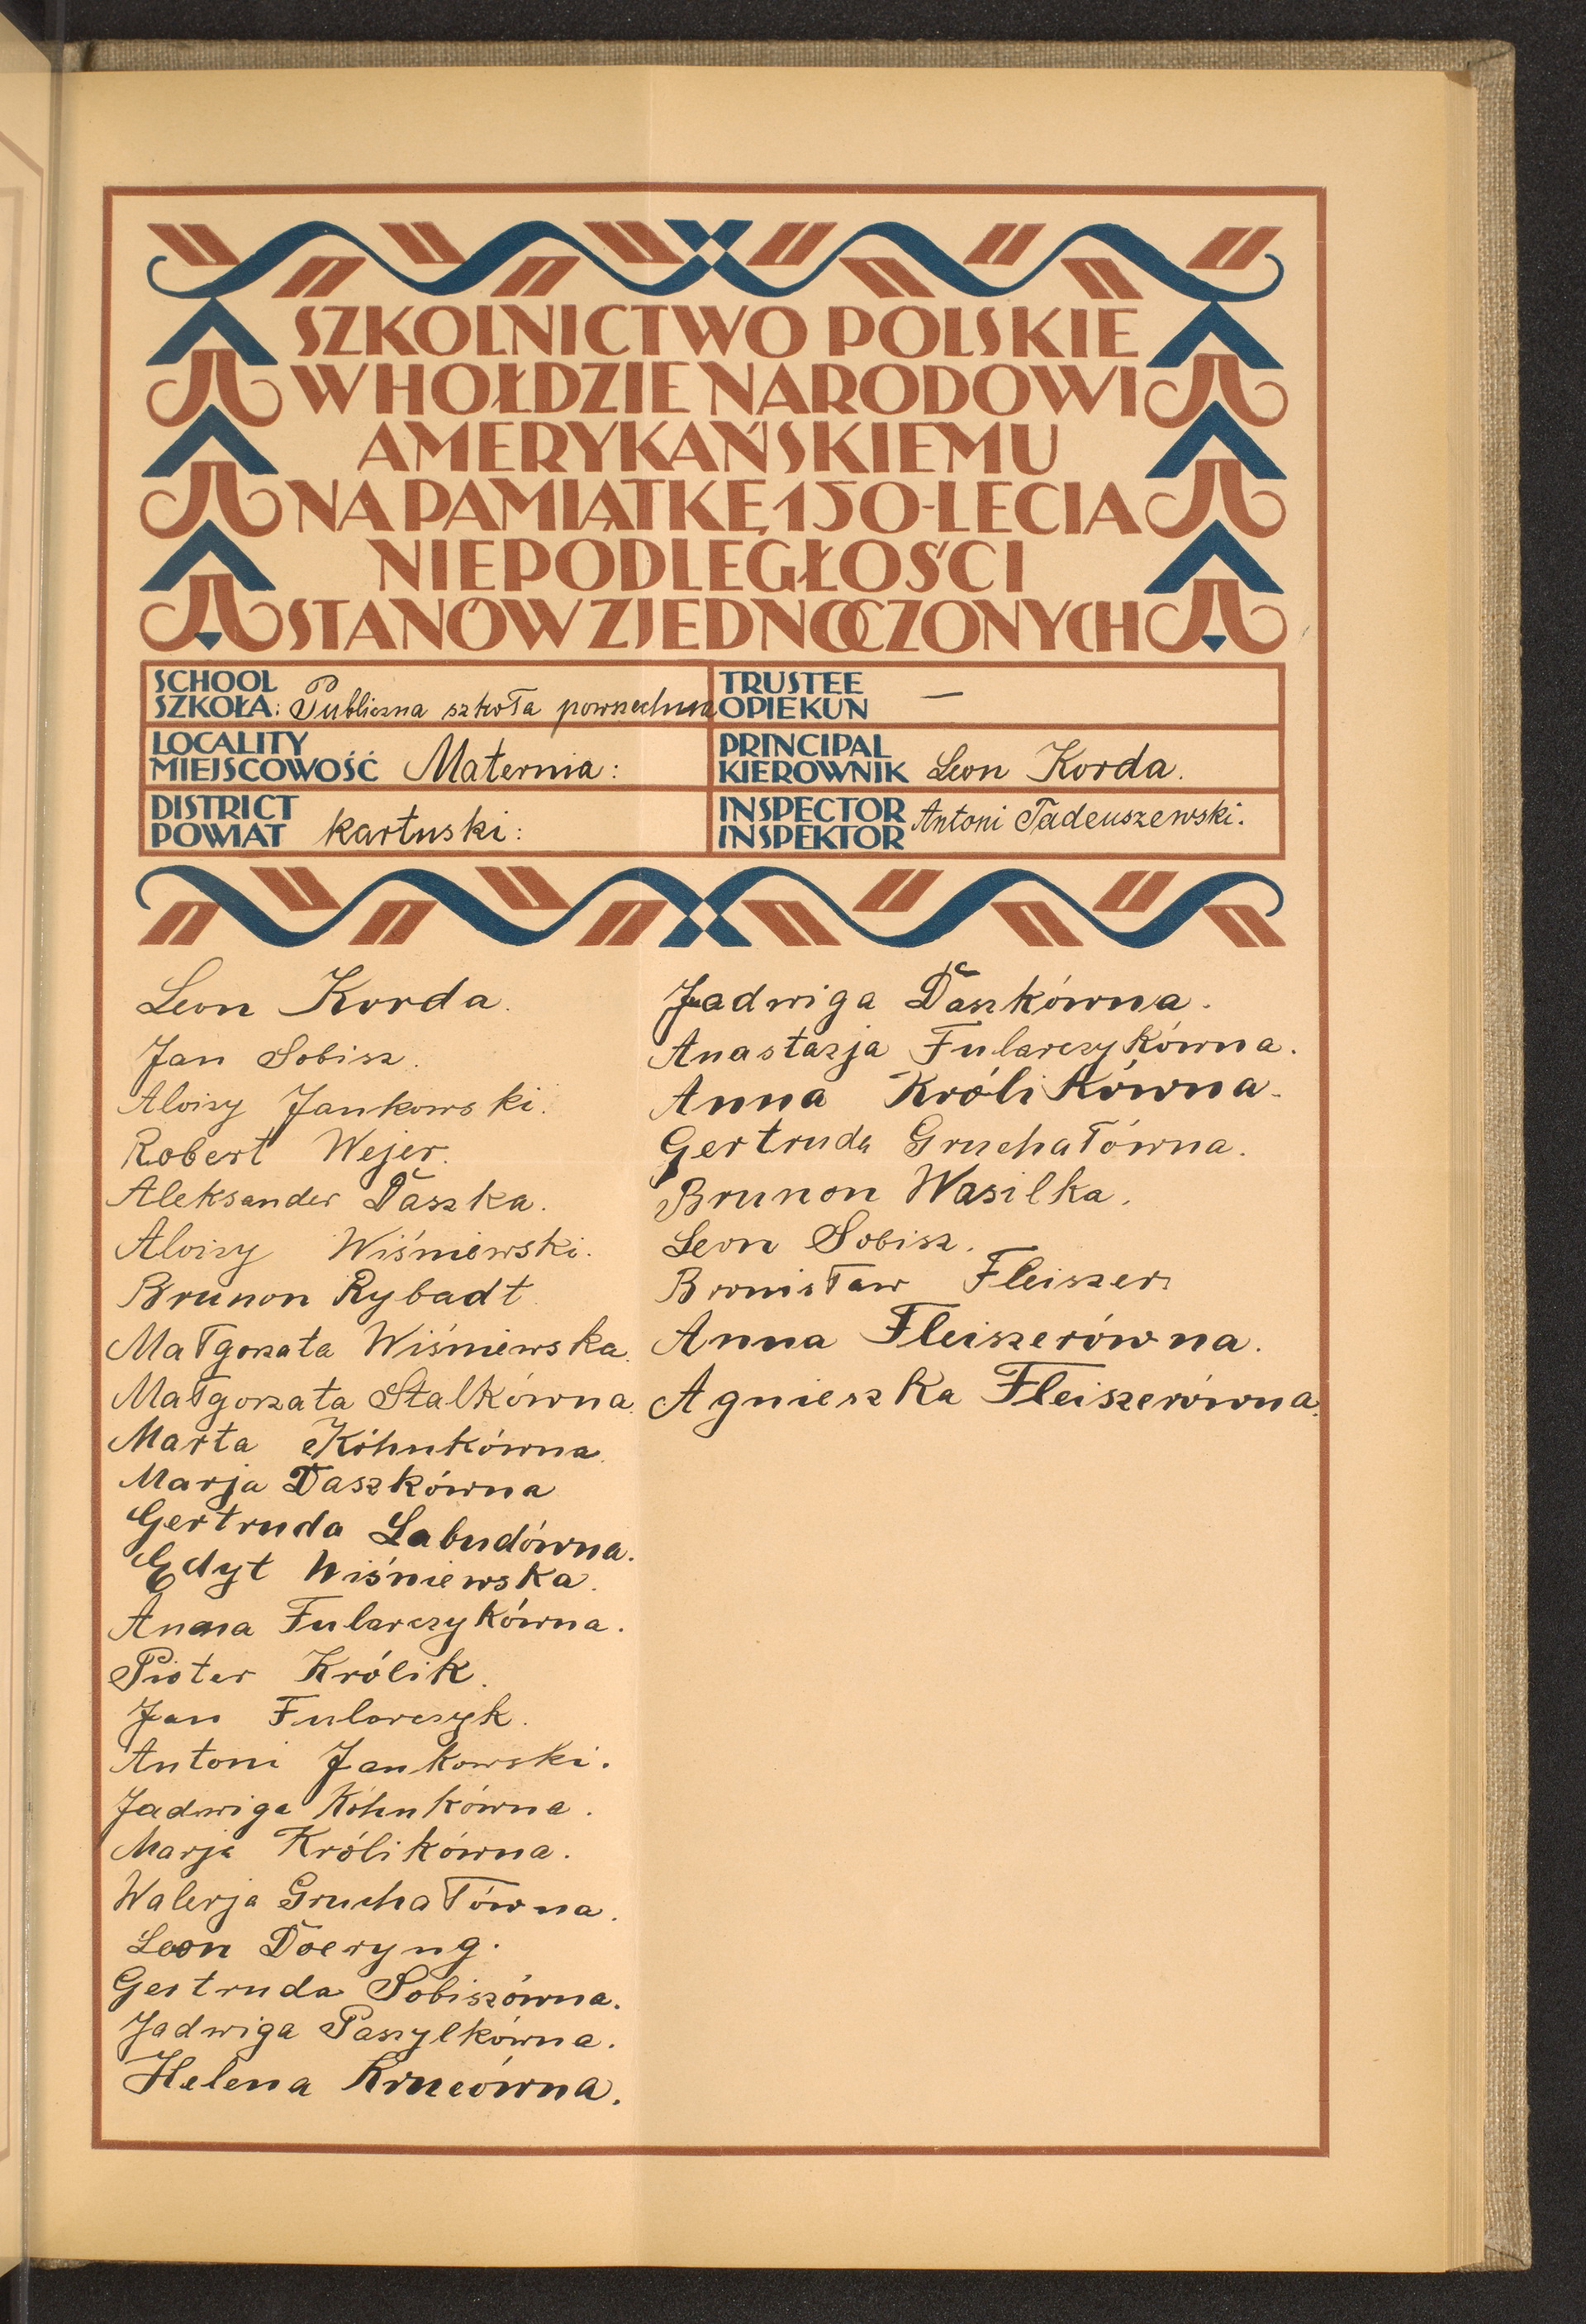 SZKOLNICTWO POLSKIE
W HOŁDZIE NARODOWI
AMERYKAŃSKIEMU
NA PAMIĄTKĘ 150-LECIA
NIEPODLEGŁOŚCI
STANÓW ZJEDNOCZONYCH
SCHOOL
SZKOŁA: Publiczna szkoła powszechna
TRUSTEE
OPIEKUN —
LOCALITY
MIEJSCOWOŚĆ Maternia:
PRINCIPAL
KIEROWNIK Leon Korda.
DISTRICT
POWIAT kartuski:
INSPECTOR
INSPEKTOR Antoni Tadeuszewski.
Leon Korda.
Jan Sobisz.
Aloizy Jankowski.
Robert Wejer.
Aleksander Daszka.
Aloizy Wiśniewski.
Brunon Rybadt
Małgorzata Wiśniewska.
Małgorzata Stalkówna.
Marta Köhnkówna.
Marja Daszkówna
Gertruda Labudówna.
Edyt Wiśniewska.
Anna Fularczykówna.
Pioter Królik.
Jan Fularczyk.
Antoni Jankowski.
Jadwiga Köhnkówna.
Marja Królikówna.
Walerja Gruchałówna.
Leon Doeryng.
Gertruda Sobiszówna.
Jadwiga Paszylkówna.
Helena Krucówna.
Jadwiga Daszkówna.
Anastazja Fularczykówna.
Anna Królikówna.
Gertruda Gruchałówna.
Brunon Wasilka.
Leon Sobisz.
Bronisław Fleiszer
Anna Fleiszerówna.
Agnieszka Fleiszerówna.